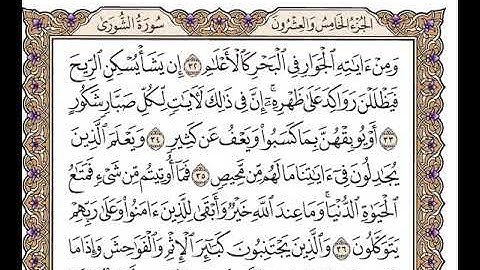 الجزء الخامس والعشرون
سورة الشورى
وَمِنْ ءَايَٰتِهِ ٱلْجَوَارِ فِى ٱلْبَحْرِ كَٱلْأَعْلَٰمِ ٣٢ إِن يَشَأْ يُسْكِنِ ٱلرِّيحَ
فَيَظْلَلْنَ رَوَاكِدَ عَلَىٰ ظَهْرِهِۦٓ ۚ إِنَّ فِى ذَٰلِكَ لَءَايَٰتٍ لِّكُلِّ صَبَّارٍ شَكُورٍ
٣٣ أَوْ يُوبِقْهُنَّ بِمَا كَسَبُوا۟ وَيَعْفُ عَن كَثِيرٍ ٣٤ وَيَعْلَمَ ٱلَّذِينَ
يُجَٰدِلُونَ فِىٓ ءَايَٰتِنَا مَا لَهُم مِّن مَّحِيصٍ ٣٥ فَمَآ أُوتِيتُم مِّن شَىْءٍ فَمَتَٰعُ
ٱلْحَيَوٰةِ ٱلدُّنْيَا ۖ وَمَا عِندَ ٱللَّهِ خَيْرٌ وَأَبْقَىٰ لِلَّذِينَ ءَامَنُوا۟ وَعَلَىٰ رَبِّهِمْ
يَتَوَكَّلُونَ ٣٦ وَٱلَّذِينَ يَجْتَنِبُونَ كَبَٰٓئِرَ ٱلْإِثْمِ وَٱلْفَوَٰحِشَ وَإِذَا مَا